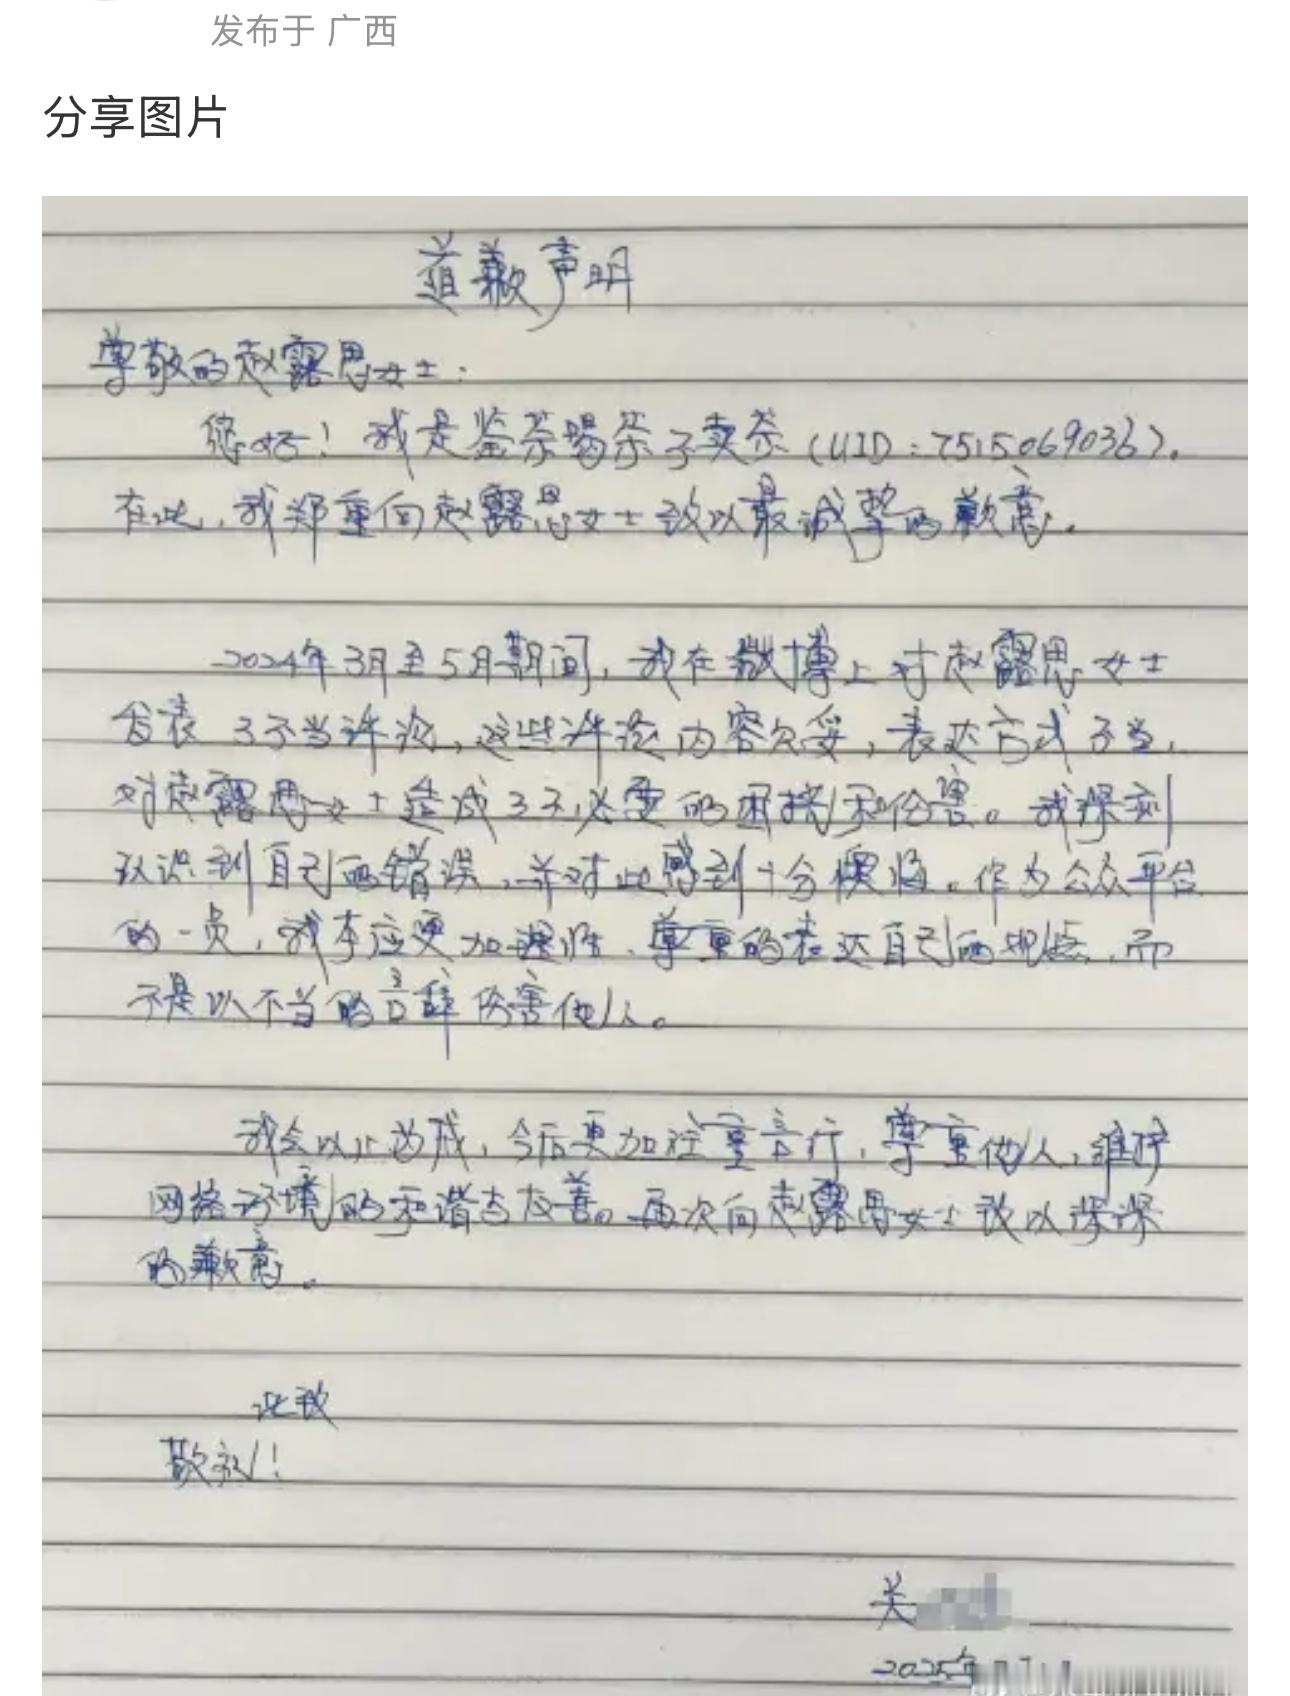 发布于 广西
分享图片
道歉声明
尊敬的赵露思女士:
您好!我是鉴茶喝茶子卖茶(UID:7515069036).
在此,我郑重向赵露思女士致以最诚挚的歉意.
2024年3月至5月期间,我在微博上对赵露思女士
发表了不当评论,这些评论内容欠妥,表达方式不当,
对赵露思女士造成了不必要的困扰和伤害。我深刻
认识到自己的错误,并对此感到十分懊悔。作为公众平台
的一员,我本应更加理性、尊重的表达自己的观点,而
不是以不当的言辞伤害他人。
我会以此为戒,今后更加注重言行,尊重他人,维护
网络环境的和谐与友善。再次向赵露思女士致以深深
的歉意。
此致
敬礼!
关
2025年